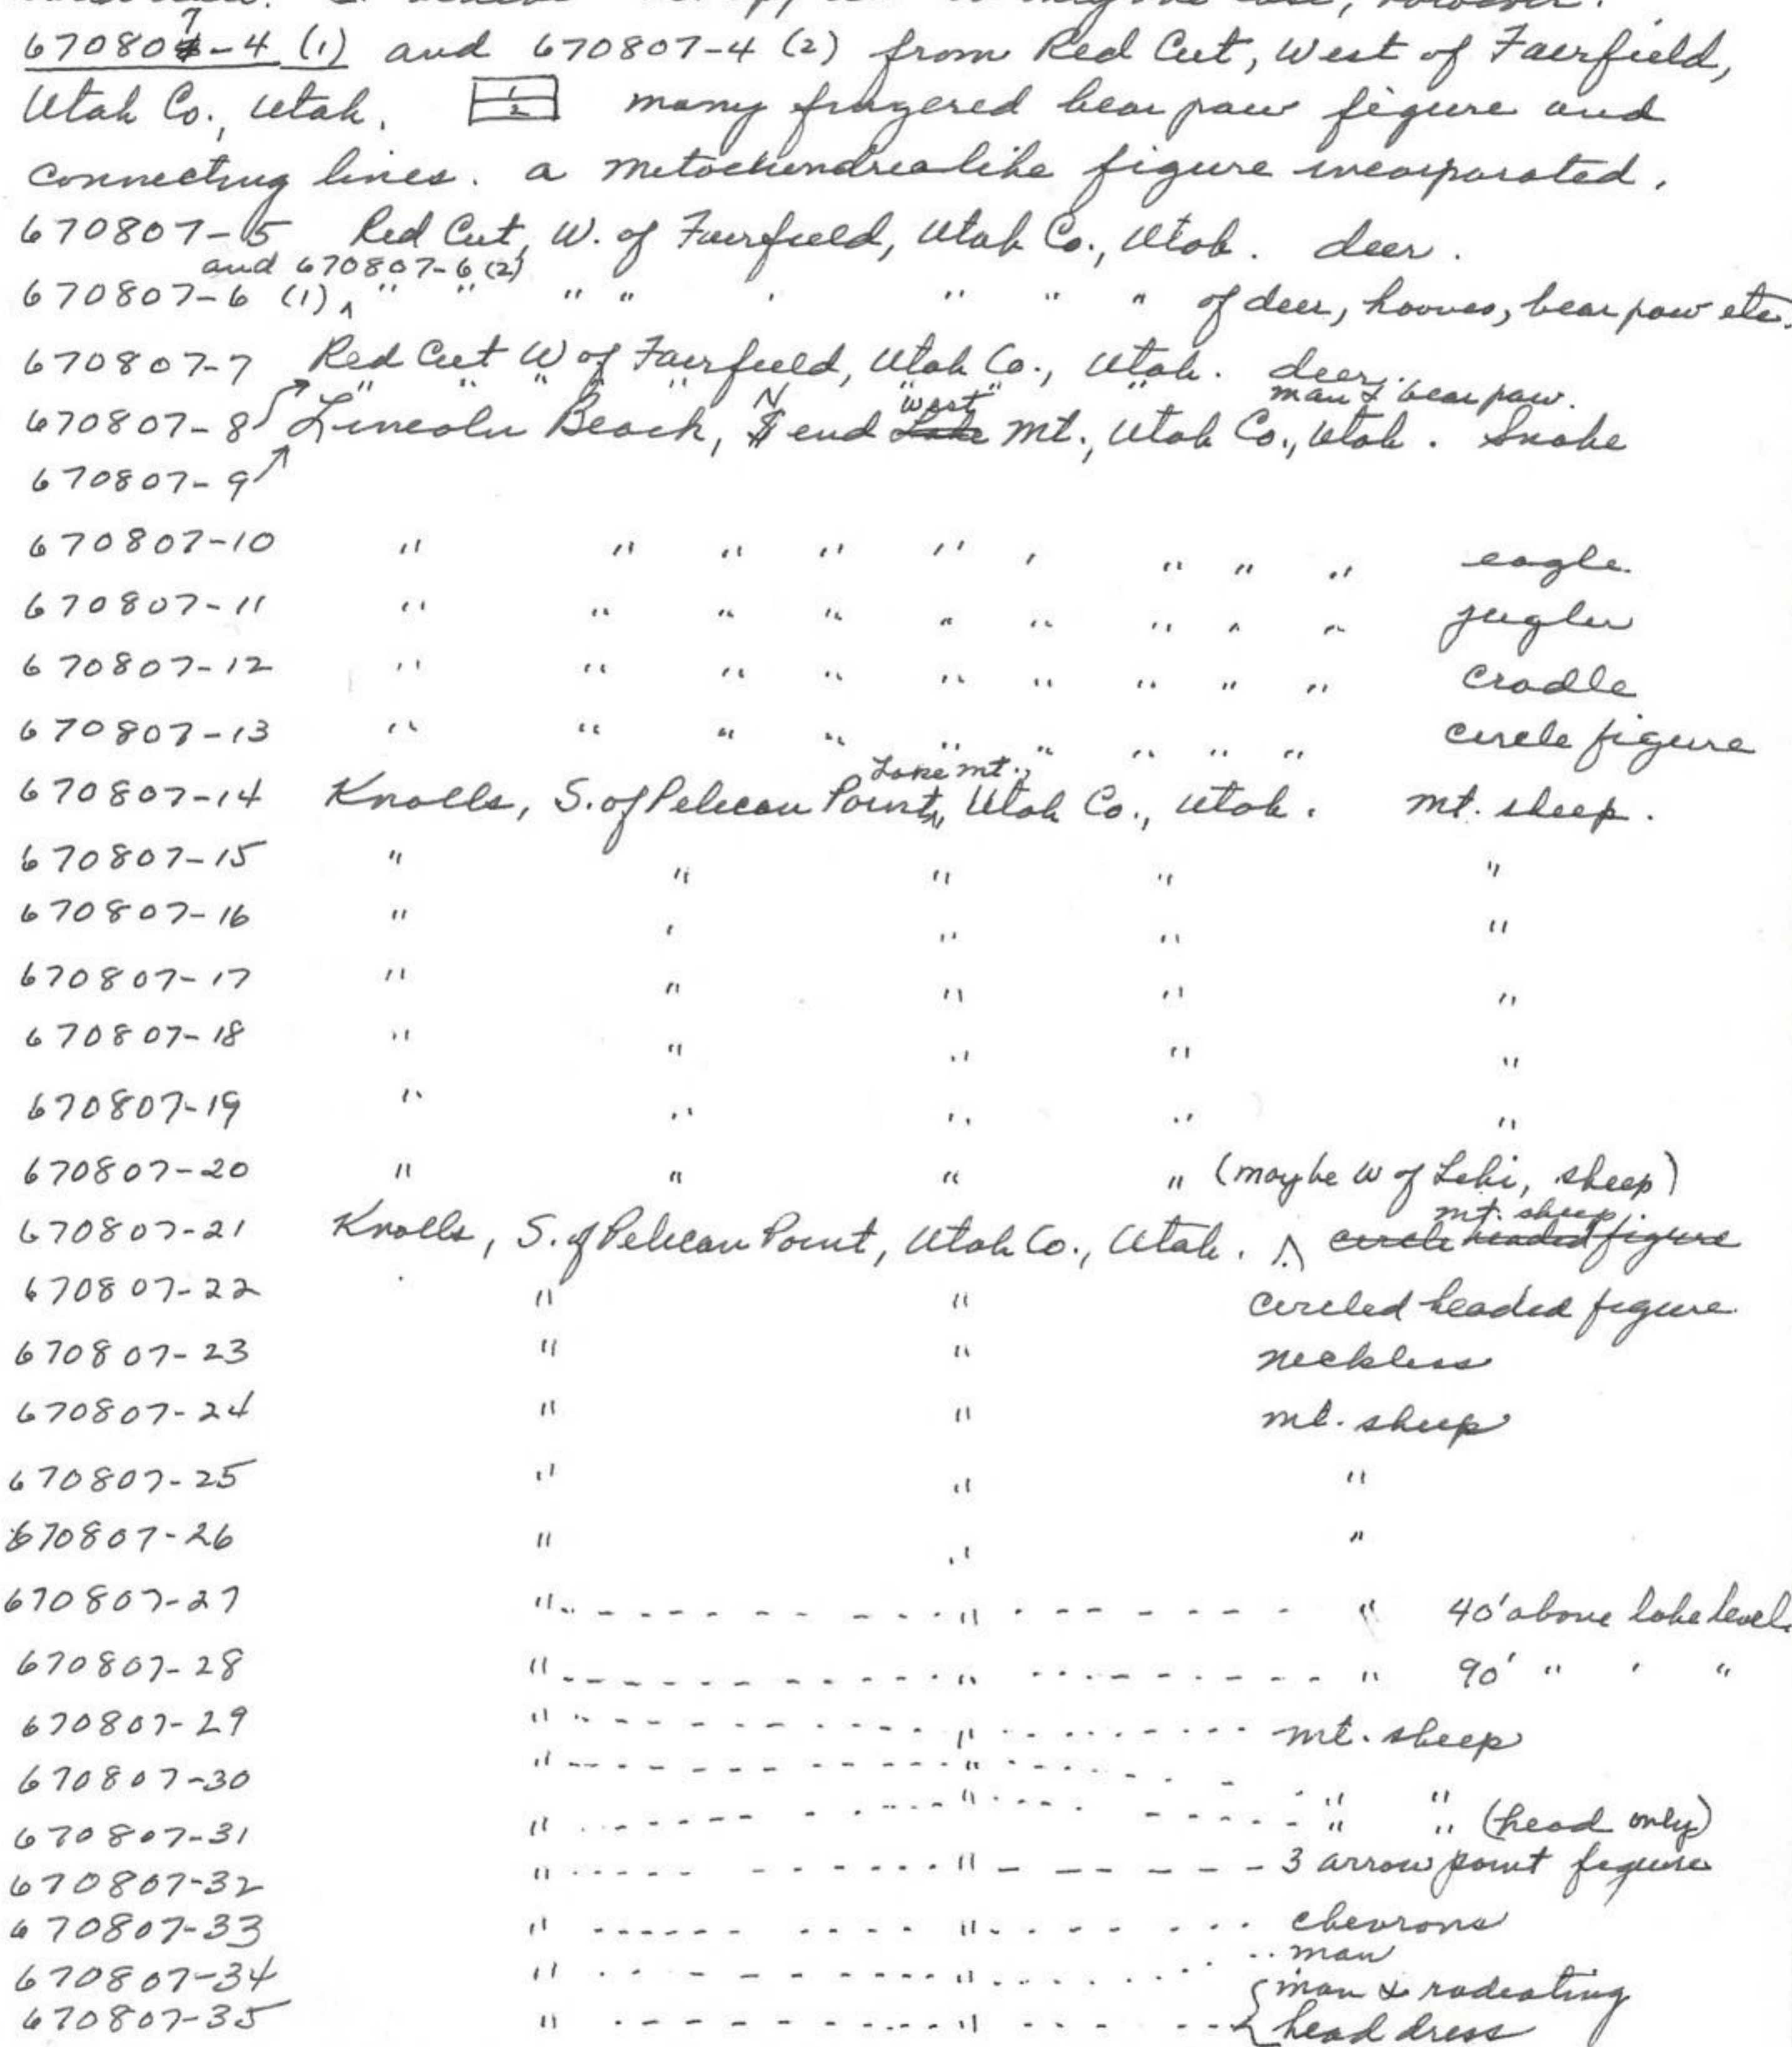 670807-4 (1) and 670807-4 (2) from Red Cut, West of Fairfield,
Utah Co., Utah. 1 2 many fingered bear paw figure and
connecting lines. a metochondrealike figure incorporated.
670807-5 Red Cut, W. of Fairfield, Utah Co., Utah. deer.
and 670807-6 (2)
670807-6 (1) " " " " " " " of deer, hooves, bear paw etc.
670807-7 Red Cut W of Fairfield, Utah Co., Utah. deer.
" " " " " " man & bear paw.
670807-8 Lincoln Beach, N end West Mt., Utah Co., Utah. Snake
670807-9
670807-10 " " " " " ' " " " eagle
670807-11 " " " " " " " " " jugler
670807-12 " " " " " " " " " cradle
670807-13 " " " " " " " " " circle figure
Lake mt.,
670807-14 Knolls, S. of Pelican Point, Utah Co., Utah. mt. sheep.
670807-15 " " " " "
670807-16 " ' " " "
670807-17 " " " " "
670807-18 " " " " "
670807-19 " " " " "
670807-20 " " " " (maybe W of Lehi, sheep)
mt. sheep.
670807-21 Knolls, S. of Pelican Point, Utah Co., Utah. circle headed figure
670807-22 " " circled headed figure
670807-23 " " neckless
670807-24 " " mt. sheep
670807-25 " " "
670807-26 " " "
670807-27 " " " 40' above lake level
670807-28 " " " 90' " ' "
670807-29 " " mt. sheep
670807-30 " " " "
670807-31 " " " " (head only)
670807-32 " " 3 arrow point figure
670807-33 " " chevrons
670807-34 " " man
670807-35 " " man & radeating
head dress